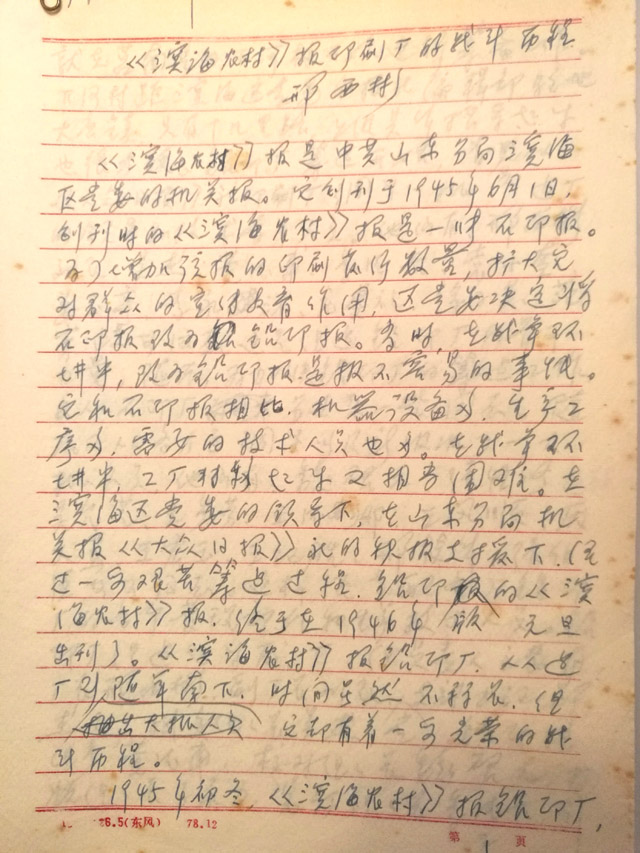 《滨海农村》报印刷厂的战斗历程
邢西村
《滨海农村》报是中共山东分局滨海
区党委的机关报。它创刊于1945年6月1日，
创刊时的《滨海农村》报是一张石印报。
为了增加该报的印刷发行数量，扩大它
对群众的宣传教育作用，区党委决定将
石印报改为铅印报。当时，在战争环
境中，改为铅印报是极不容易的事情。
它和石印报相比，机器设备多，生产工
序多，需要的技术人员也多。在战争环
境中，工厂转移起来又相当困难。在
滨海区党委的领导下，在山东分局机
关报《大众日报》社的积极支援下，经
过一番艰苦筹建过程，铅印的《滨
海农村》报，终于在1946年 元旦
出刊了。《滨海农村》报铅印厂，从建
厂到随军南下，时间虽然不算长，但
它却有着一番光荣的战
斗历程。
1945年初冬，《滨海农村》报铅印厂，
6.5(东风) 78.12
第 1 页